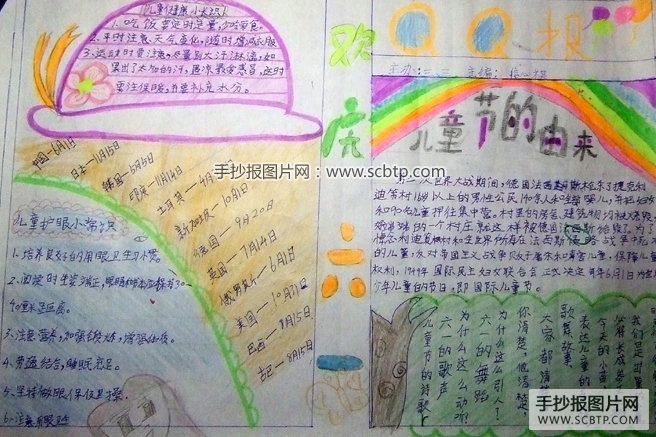 儿童健康小常识
1、吃饭要定时定量,少吃零食。
2、平时注意天气变化,随时增减衣服
3、运动时要注意,尽量别大汗淋漓,如
果出了太多的汗,遇凉最易感冒,这时
要注意保暖,并要补充水分。
中国—6月1日
日本—1月15日
韩国—5月5日
印度—11月14日
土耳其—4月
新加坡—10月1日
德国—9月20日
英国—7月14日
俄罗斯—6月1日
美国—10月
巴西—8月15日
古巴—8月15日
儿童护眼小常识
1、培养良好的用眼卫生习惯。
2、阅读时坐姿端正,眼睛和书本距离30—
40厘米是正辰。
3、注意营养,加强锻炼,增强体质。
4、劳逸结合,睡眠充足。
5、坚持做眼保健操。
欢
度
六
一
QQ报
主办:三、三 主编:
儿童节的由来
第二次世界大战期间,德国法西斯
16岁以上的男性公民140余人和全部婴儿,并把妇女
和90名儿童押往集中营。村里的房舍、建筑物均被烧毁,
好端端的一个村庄就这样被德国法西斯给毁了。为了
悼念利迪策村和全世界所有在法西斯侵略战争中死难
的儿童,反对帝国主义战争贩子屠杀和毒害儿童,保障儿童
权利,1949年国际民主妇女联合会正式决定每年6月1日为
儿童的节日,即国际儿童节。
儿童节的诗歌
六一的歌声
为什么这么动听?
六一的舞蹈
为什么这么引人?
你清楚,他清楚,
大家都清楚
歌舞故事
表达儿童的
今天的小苗
必将长成
我们是
手抄报图片网:www.scbtp.com
手抄报图片网
WWW.SCBTP.COM